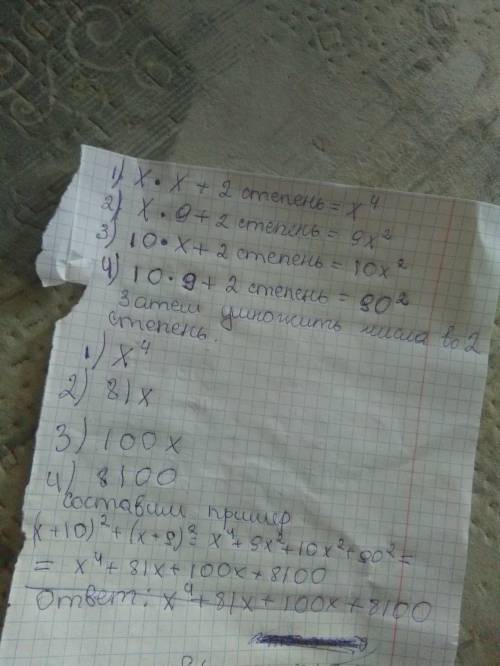 1) x · x + 2 степень = x⁴
2) x · 9 + 2 степень = 9x²
3) 10 · x + 2 степень = 10x²
4) 10 · 9 + 2 степень = 90²
Затем умножить числа во 2
степень.
1) x⁴
2) 81x
3) 100x
4) 8100
составим пример
(x+10)² + (x+9)² = x⁴ + 9x² + 10x² + 90² =
= x⁴ + 81x + 100x + 8100
Ответ: x⁴ + 81x + 100x + 8100